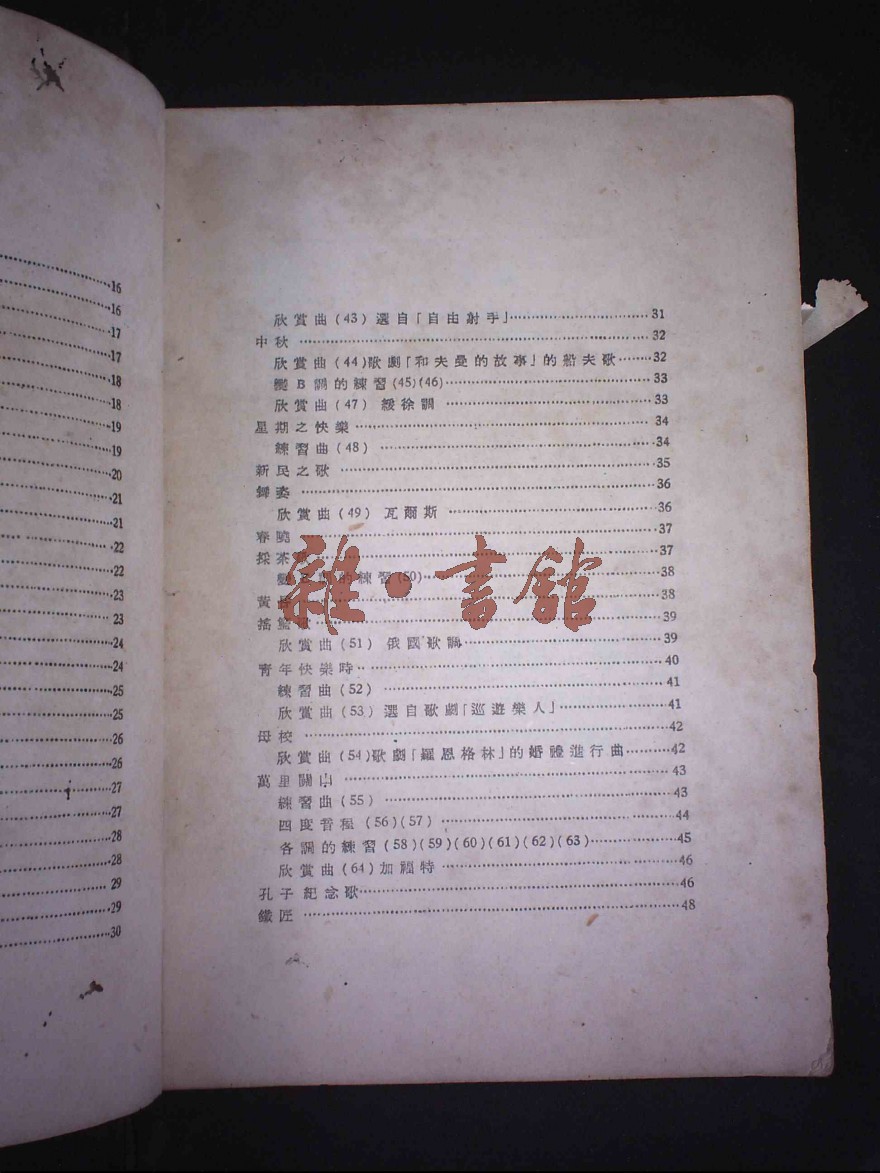 16
16
17
17
18
18
19
19
20
21
21
22
22
23
23
24
24
25
25
26
26
27
27
28
28
29
29
30
欣賞曲(43) 選自「自由射手」 31
中秋 32
欣賞曲(44)歌劇「和夫曼的故事」的船夫歌 32
變B調的練習(45)(46) 33
欣賞曲(47) 緩徐調 33
星期之快樂 34
練習曲(48) 34
新民之歌 35
舞姿 36
欣賞曲(49) 瓦爾斯 36
春 37
採茶 37
的練習(50) 38
黃 38
搖籃 39
欣賞曲(51) 俄國歌調 39
青年快樂時 40
練習曲(52) 41
欣賞曲(53) 選自歌劇「巡遊樂人」 41
母校 42
欣賞曲(54)歌劇「羅恩格林」的婚禮進行曲 42
萬里關山 43
練習曲(55) 43
四度音程 (56)(57) 44
各調的練習(58)(59)(60)(61)(62)(63) 45
欣賞曲(64)加福特 46
孔子紀念歌 46
鐵匠 48
雜·書館